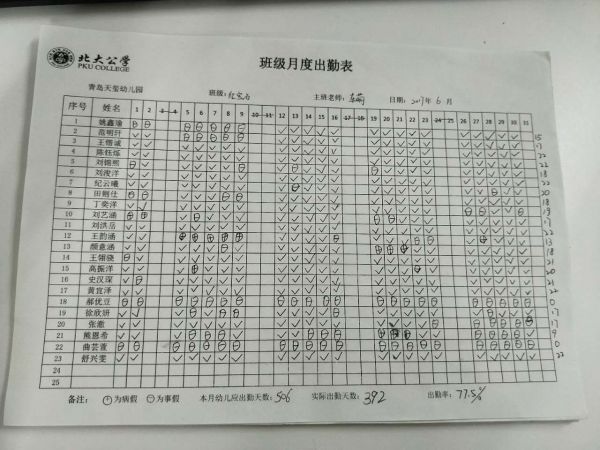 北大公学
PKU COLLEGE
班级月度出勤表
青岛天玺幼儿园 班级: 红宝石 主班老师: 日期: 2017年 6 月
序号 姓名 1 2 3 4 5 6 7 8 9 10 11 12 13 14 15 16 17 18 19 20 21 22 23 24 25 26 27 28 29 30 31
1 姚鑫瑜 15
2 范明轩 17
3 王锴诚 22
4 陈钰烁 22
5 刘锦熙 18
6 刘浚洋 22
7 纪云曦
8 田钶仕
9 丁奕洋
10 刘艺涵
11 刘洪岳 22
12 王韵涵 13
13 颜意涵 18
14 王翎骁 21
15 高振洋 20
16 史汉琛 21
17 黄宜泽 22
18 郝优豆 0
19 徐欣妍 17
20 张憨
21 熊恩希 9
22 曲芸萱 0
23 舒兴雯 22
24
25
备注: +为病假 －为事假 本月幼儿应出勤天数: 506 实际出勤天数: 392 出勤率: 77.5%